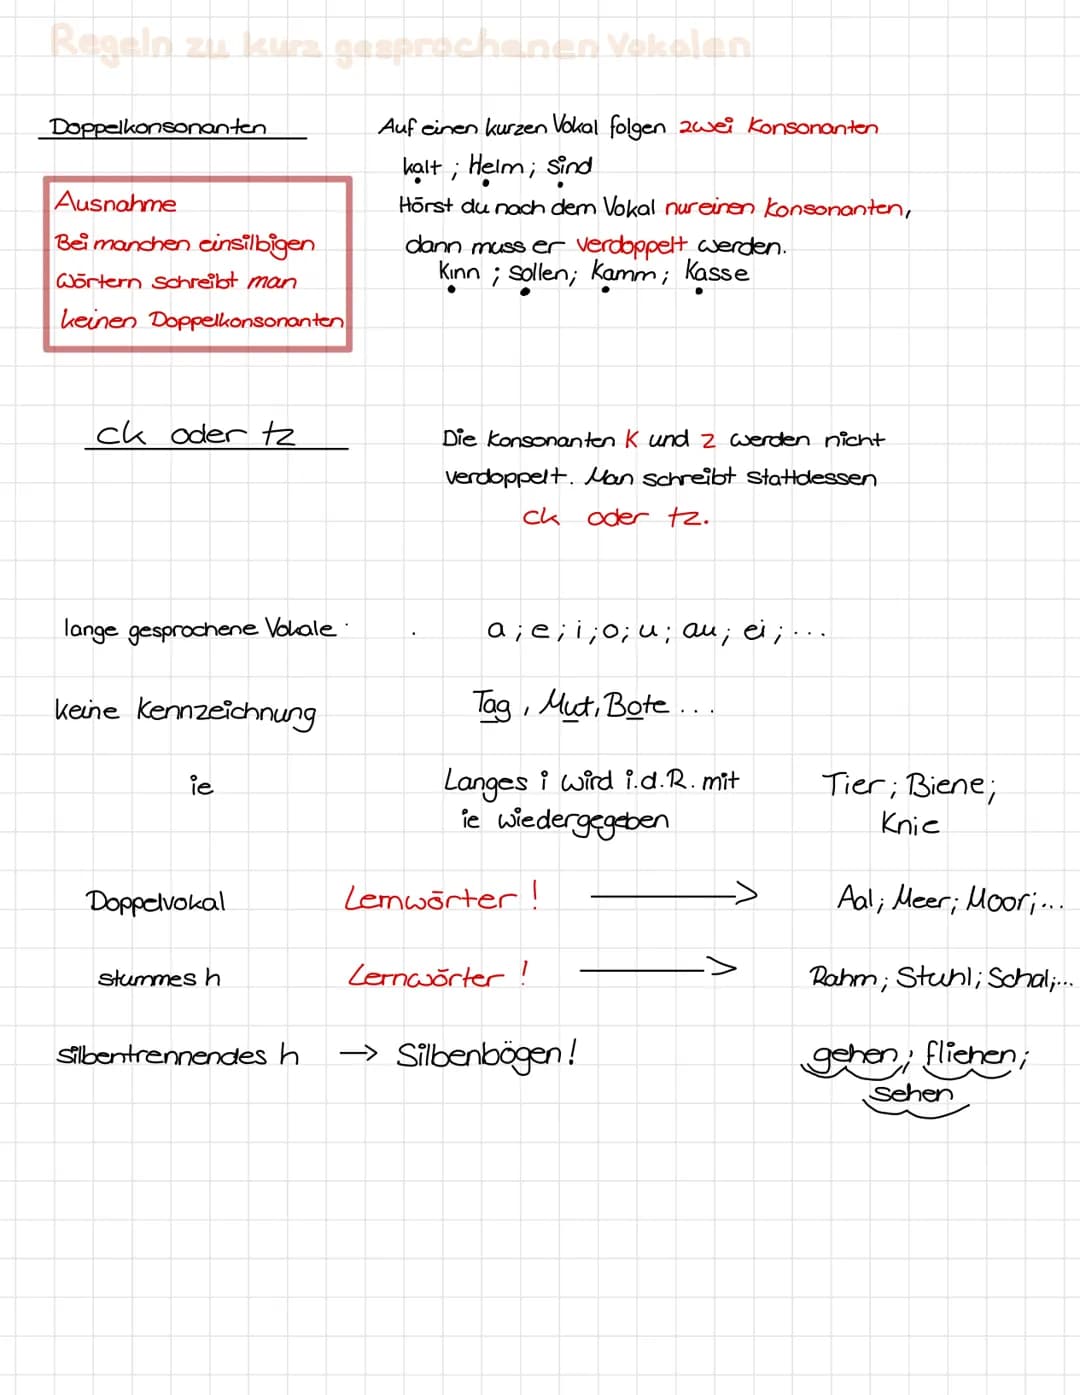 Regeln zu kurz gesprochenen Vokalen
Doppelkonsonanten
Auf einen kurzen Vokal folgen zwei Konsonanten
kalt ; Helm ; sind
Hörst du nach dem Vokal nur einen Konsonanten,
dann muss er verdoppelt werden.
Kinn ; sollen; Kamm ; Kasse
Ausnahme
Bei manchen einsilbigen
Wörtern schreibt man
keinen Doppelkonsonanten
ck oder tz
Die Konsonanten K und z werden nicht
verdoppelt. Man schreibt stattdessen
ck oder tz.
lange gesprochene Vokale
a ; e ; i ; o ; u ; au ; ei ; ...
keine Kennzeichnung
Tag , Mut, Bote ...
ie
Langes i wird i.d.R. mit
ie wiedergegeben
Tier ; Biene;
Knie
Doppelvokal
Lernwörter !
Aal ; Meer ; Moor ; ...
stummes h
Lernwörter !
Rahm ; Stuhl ; Schal ; ...
silbentrennendes h → Silbenbögen!
gehen ; fliehen ;
sehen